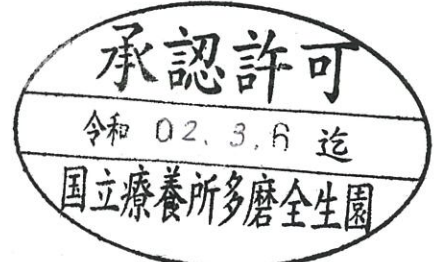 承認許可
令和 02. 3. 6 迄
国立療養所多磨全生園